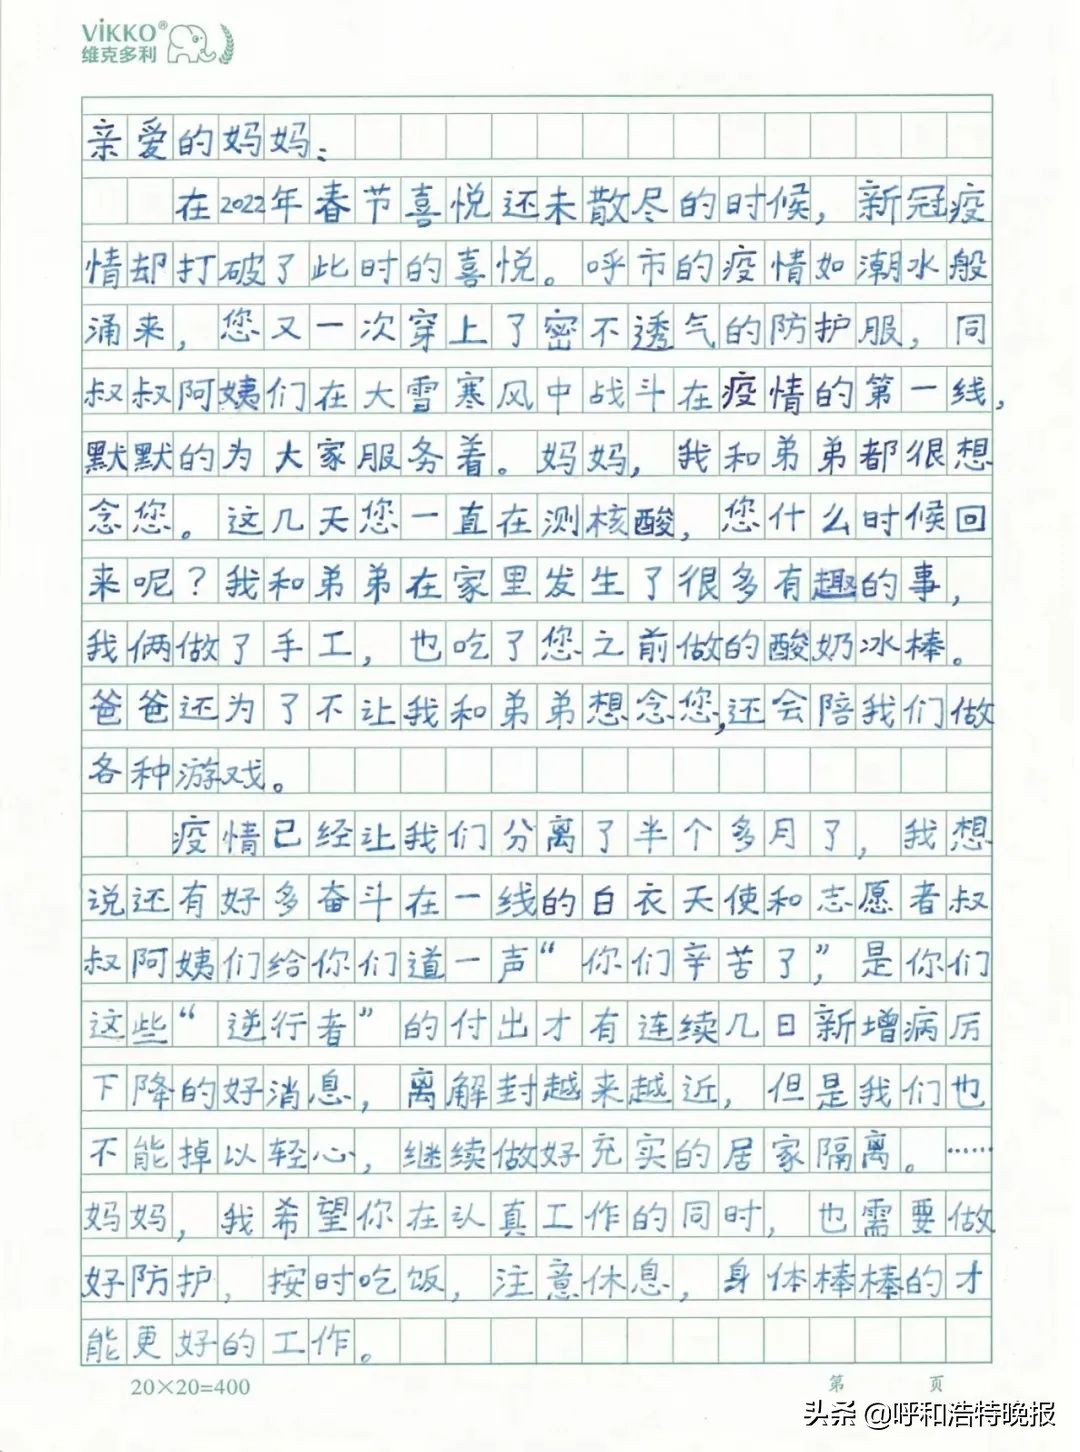 ViKKO®
维克多利
亲爱的妈妈:
在2022年春节喜悦还未散尽的时候，新冠疫
情却打破了此时的喜悦。呼市的疫情如潮水般
涌来，您又一次穿上了密不透气的防护服，同
叔叔阿姨们在大雪寒风中战斗在疫情的第一线，
默默的为大家服务着。妈妈，我和弟弟都很想
念您。这几天您一直在测核酸，您什么时候回
来呢？我和弟弟在家里发生了很多有趣的事，
我俩做了手工，也吃了您之前做的酸奶冰棒。
爸爸还为了不让我和弟弟想念您，还会陪我们做
各种游戏。
疫情已经让我们分离了半个多月了，我想
说还有好多奋斗在一线的白衣天使和志愿者叔
叔阿姨们给你们道一声“你们辛苦了”，是你们
这些“逆行者”的付出才有连续几日新增病历
下降的好消息，离解封越来越近，但是我们也
不能掉以轻心，继续做好充实的居家隔离。……
妈妈，我希望你在认真工作的同时，也需要做
好防护，按时吃饭，注意休息，身体棒棒的才
能更好的工作。
20×20=400 第 页
头条 @呼和浩特晚报